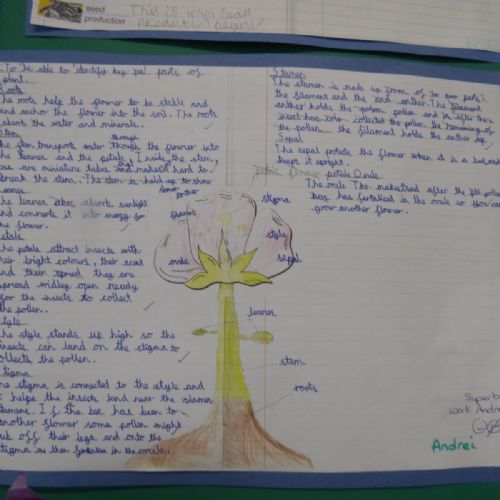 seed
production
This is when seed
production begins
To be able to identify key parts of
plant.
Roots
The roots help the flower to be stable and
and anchor the flower into the soil. The roots
absorb the water and minerals.
Stem
through
The stem transports water though the flower into
the leaves and the petals. Inside the stem,
are miniature tubes and makes it hard to
break the stem. The stem is held up to show
flower
further
Leaves
The leaves absorb sunlight
and converts it into energy for
the flower.
Petals
The petals attract insects with
their bright colours, their scent
and their spread they are
spread widley open ready
for the insects to collect
the pollen.
Style
The style stands up high so the
insects can land on the stigma to
collects the pollen.
Stigma
The stigma is connected to the style and
it helps the insects land near the
stamens. If the bee has been to
another flower some pollen might
rub off their legs and onto the
stigma in the ovule.
Stamen
The stamen is made up of to parts:
the filament and the anther. The filament
anther holds the pollen and after then
insect has collects the pollen the remaining of
the pollen. the filament holds the anther up.
Sepal
The sepal potects the flower when it is a bud and
keeps it upright.
petals Ovule
The ovule after the pollen
has fertalised in the ovule so you can
grow another flower.
stigma
style
sepal
ovule
leaves
stem
roots
Superb
work Andrei
Andrei